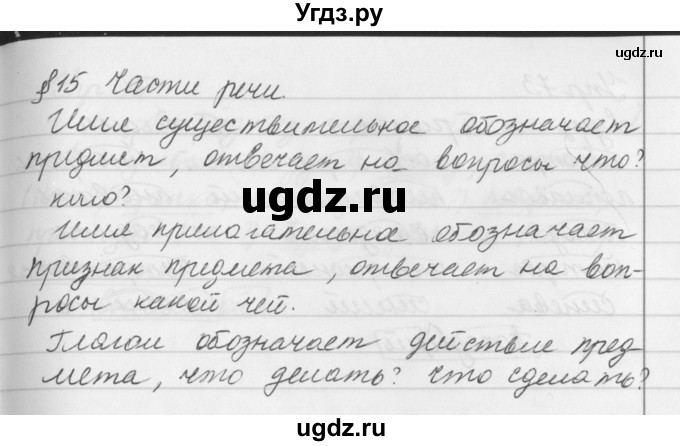 Угдз.ру
ugdz.ru
§15 Части речи.
Имя существительное обозначает
предмет, отвечает на вопросы что?
кого?
ugdz.ru
Имя прилагательное обозначает
признак предмета, отвечает на воп-
росы какой чей.
Глагол обозначает действие пред-
мета, что делать? что сделать?
ugdz.ru
ugdz.ru